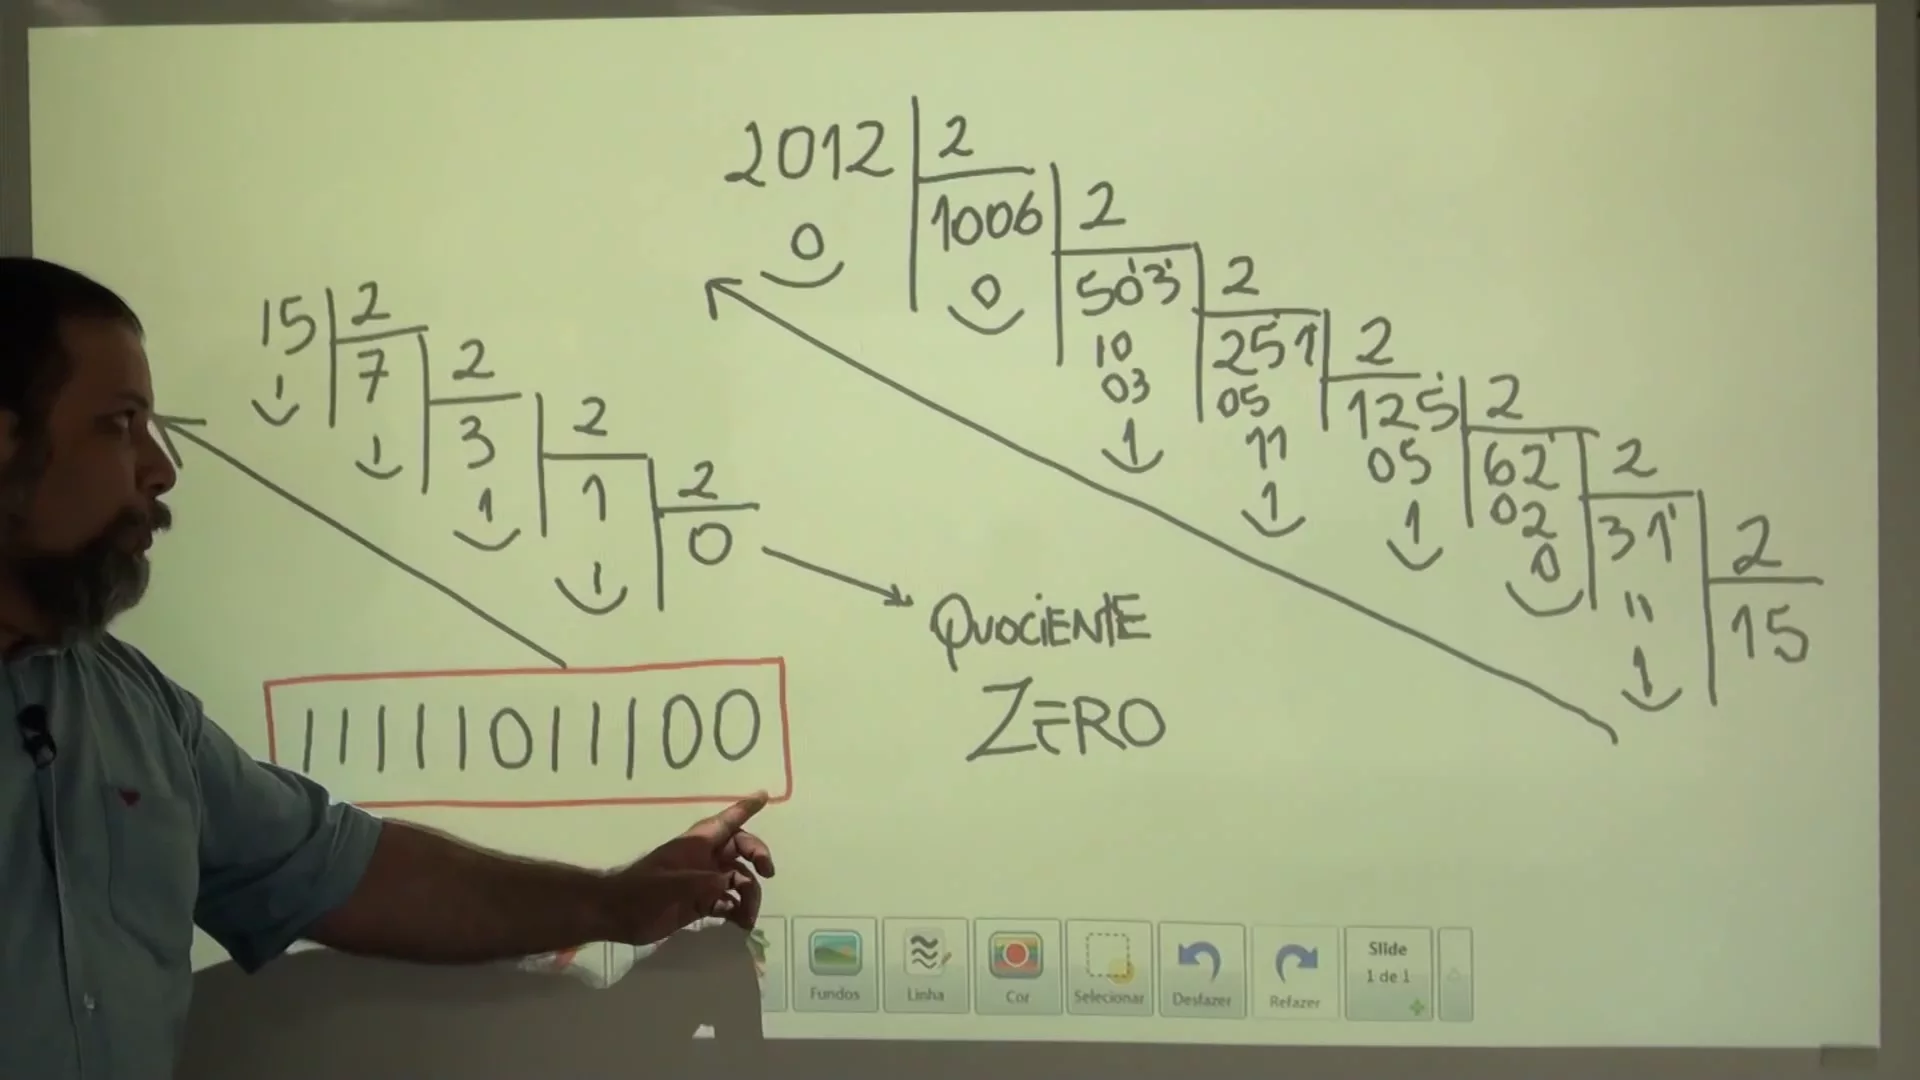 2012 2
0 1006 2
0 503 2
10 251 2
03 05 125 2
1 11 05 62 2
1 1 02 31 2
0 11 15
1
15 2
1 7 2
1 3 2
1 1 2
1 0
QUOCIENTE
ZERO
11111011100
Fundos
Linha
Cor
Selecionar
Desfazer
Refazer
Slide
1 de 1